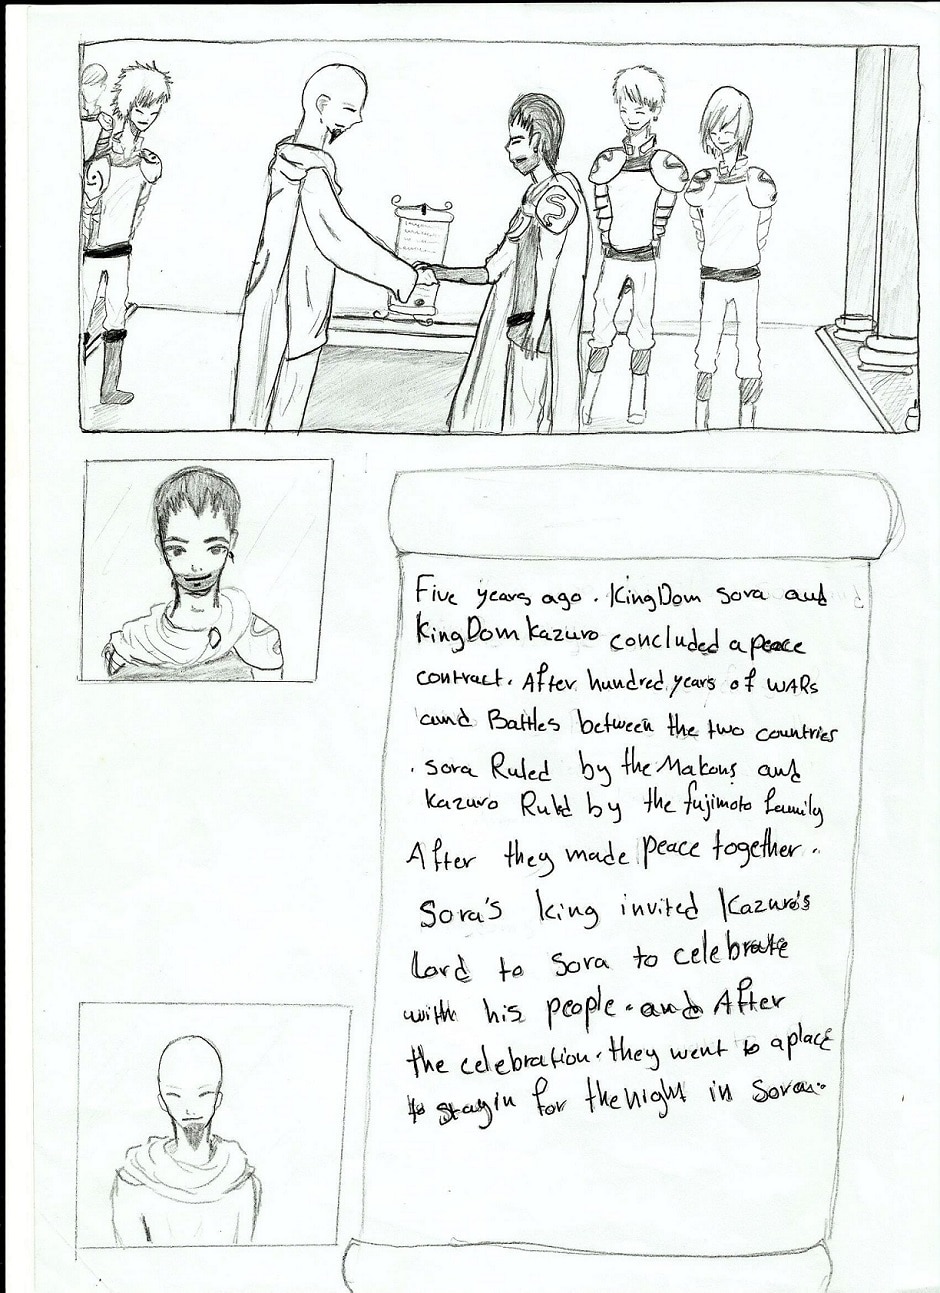 S
Five years ago. KingDom Sora and
KingDom Kazuro concluded a peace
contract. After hundred years of WARs
and Battles between the two countries
. Sora Ruled by the Makons and
Kazuro Ruled by the fujimoto family
After they made peace together.
Sora's king invited Kazuro's
Lord to Sora to celebrate
with his people. and After
the celebration. they went to a place
to stay in for the night in Sora..